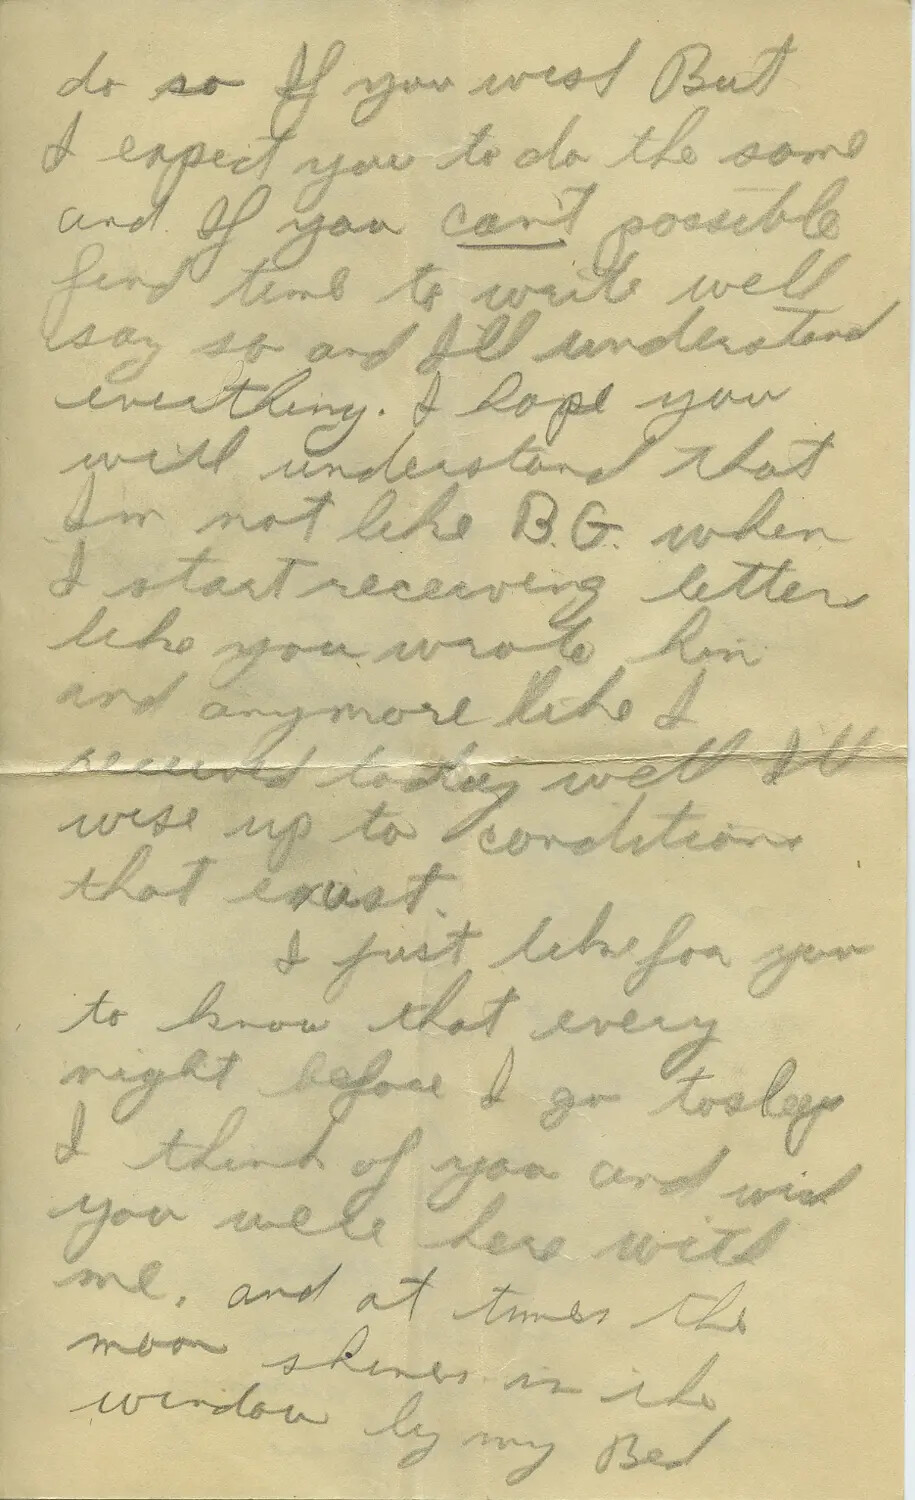 do so If you wish But
I expect you to do the same
and If you can't possible
find time to write well
say so and I'll understand
everthing. I hope you
will understand that
I'm not like B.G. when
I start receiving letter
like you wrote him
and anymore like I
received today well I'll
wise up to conditions
that exist.
I just like for you
to know that every
night before I go to sleep
I think of you and wish
you were here with
me, and at times the
moon shines in the
window by my Bed